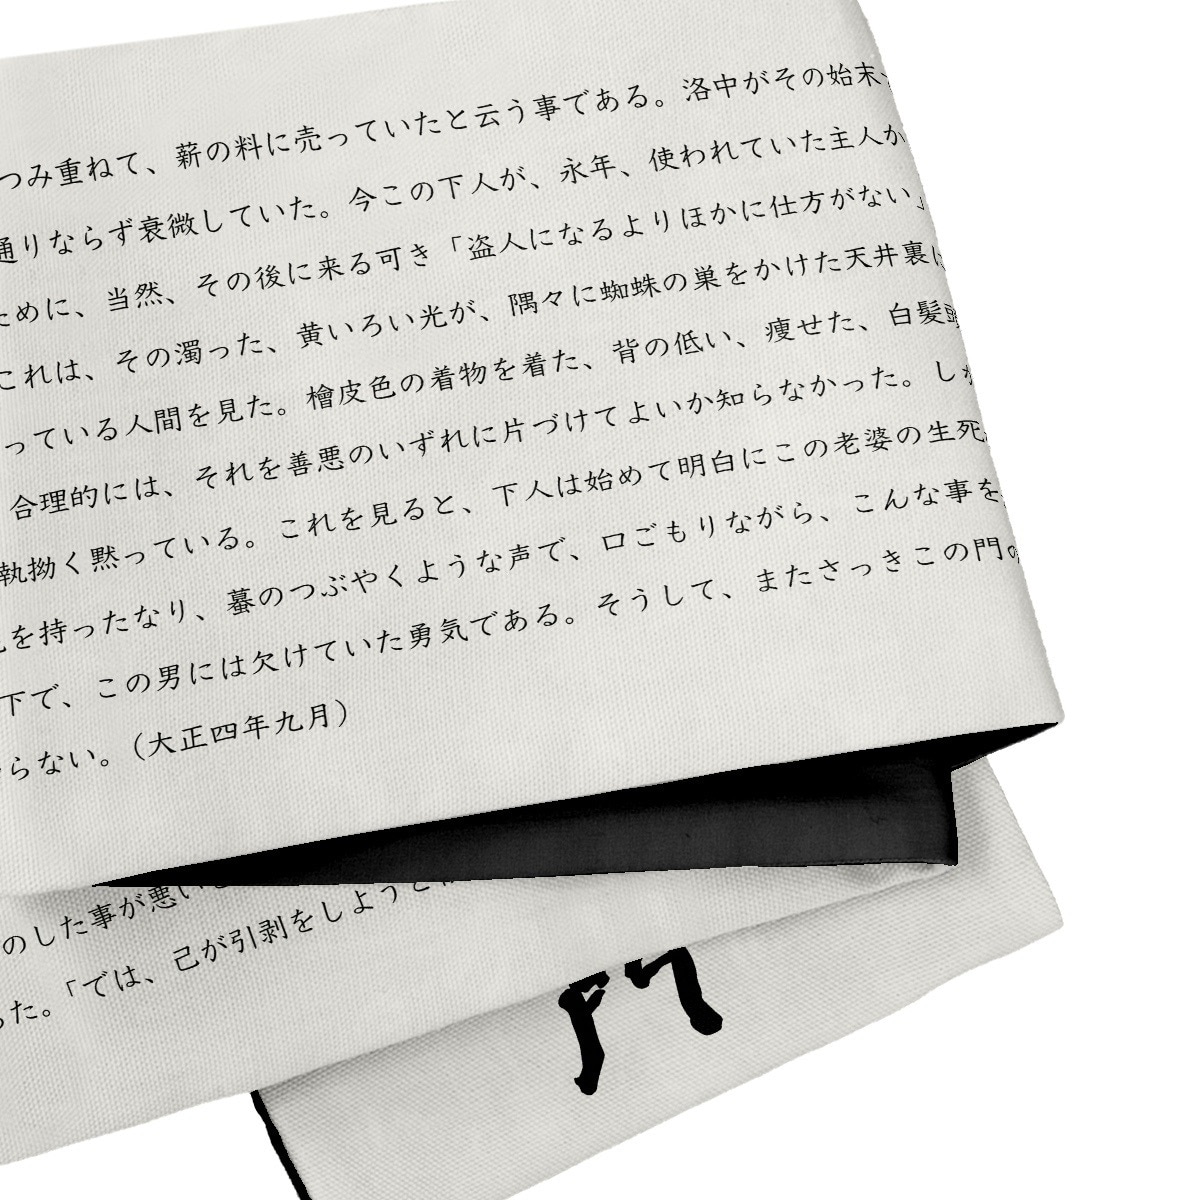 つみ重ねて、薪の料に売っていたと云う事である。洛中がその始末
通りならず衰微していた。今この下人が、永年、使われていた主人か
ために、当然、その後に来る可き「盗人になるよりほかに仕方がない」
これは、その濁った、黄いろい光が、隅々に蜘蛛の巣をかけた天井裏に
っている人間を見た。檜皮色の着物を着た、背の低い、痩せた、白髪頭
合理的には、それを善悪のいずれに片づけてよいか知らなかった。しか
執拗く黙っている。これを見ると、下人は始めて明白にこの老婆の生死
を持ったなり、蟇のつぶやくような声で、口ごもりながら、こんな事を
下で、この男には欠けていた勇気である。そうして、またさっきこの門の
らない。(大正四年九月)
のした事が悪い
った。「では、己が引剥をしようと
門